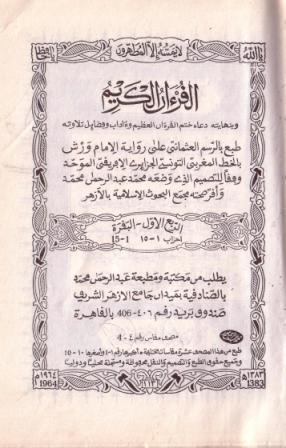 يا الله
لا يمسه إلا المطهرون
يا حافظ
القرءان الكريم
وبنهايته دعاء ختم القرءان العظيم وءاداب وفضايل تلاوته
طبع بالرسم العثماني على رواية الإمام ورش
بالخط المغربي التونسي الجزايري الإفريقي الموحد
وفقا للتصميم الذي وضعه محمد عبد الرحمن محمد
وأقر صحته مجمع البحوث الإسلامية بالأزهر
الربع الأول - البقرة
أحزاب ١ - ١٥ 1-15
يطلب من مكتبة ومطبعة عبد الرحمن محمد
بالصنادقية بميدان جامع الأزهر الشريف
صندوق بريد رقم ٤٠٦ - 406 بالقاهرة
مصحف مقاس رقم ٤ - 4
طبع من هذا المصحف عشرة مقاسات مختلفة أكبرها رقم ١-1 وأصغرها ١٠-10
وجميع حقوق الطبع والتصميم والنقل محفوظة ومسجلة محليا ودوليا
١٩٦٤ م
1964
١٣٨٣ ه
1383